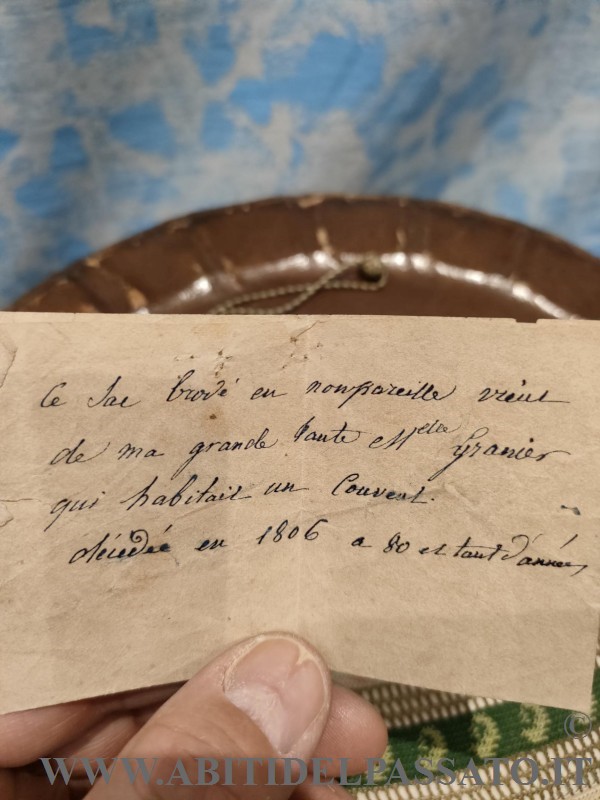 Ce Sac brodé en nonpareille vient
de ma grande tante Melle Granier
qui habitait un Couvent.
décédée en 1806 a 80 et tant d'années
©
WWW.ABITIDELPASSATO.IT